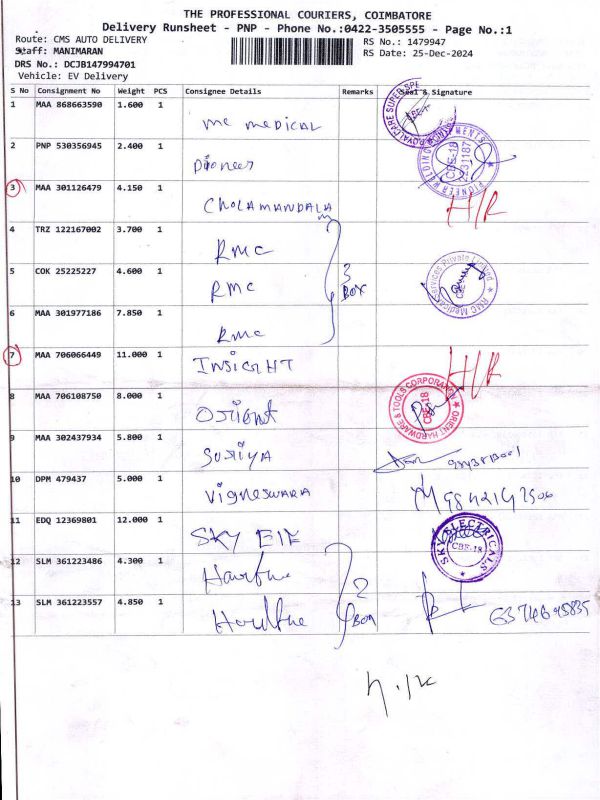 THE PROFESSIONAL COURIERS, COIMBATORE
Delivery Runsheet - PNP - Phone No.:0422-3505555 - Page No.:1
Route: CMS AUTO DELIVERY
RS No.: 1479947
Staff: MANIMARAN
RS Date: 25-Dec-2024
DRS No.: DCJB147994701
Vehicle: EV Delivery
S No Consignment No Weight PCS Consignee Details Remarks Seal & Signature
1 MAA 868663590 1.600 1 mc medical ROYALCARE SUPER SPE
2 PNP 530356945 2.400 1 Pioneer PIONEER WELDING CBE-18 2231187
3 MAA 301126479 4.150 1 CHOLAMANDALAm H/R
4 TRZ 122167002 3.700 1 Rmc
5 COK 25225227 4.600 1 Rmc 3 Box RMC Medical Services Private Limited CBE
6 MAA 301977186 7.850 1 Rmc
7 MAA 706066449 11.000 1 INSIGHT H/R
8 MAA 706108750 8.000 1 Orient ORIENT HARDWARE & TOOLS CORPORATION CBE-18
9 MAA 302437934 5.800 1 SURIYA
10 DPM 479437 5.000 1 VIGNESWARA
11 EDQ 12369801 12.000 1 SKY SKY ELECTRICALS CBE-18
12 SLM 361223486 4.300 1
13 SLM 361223557 4.850 1 2 Box 6374695835